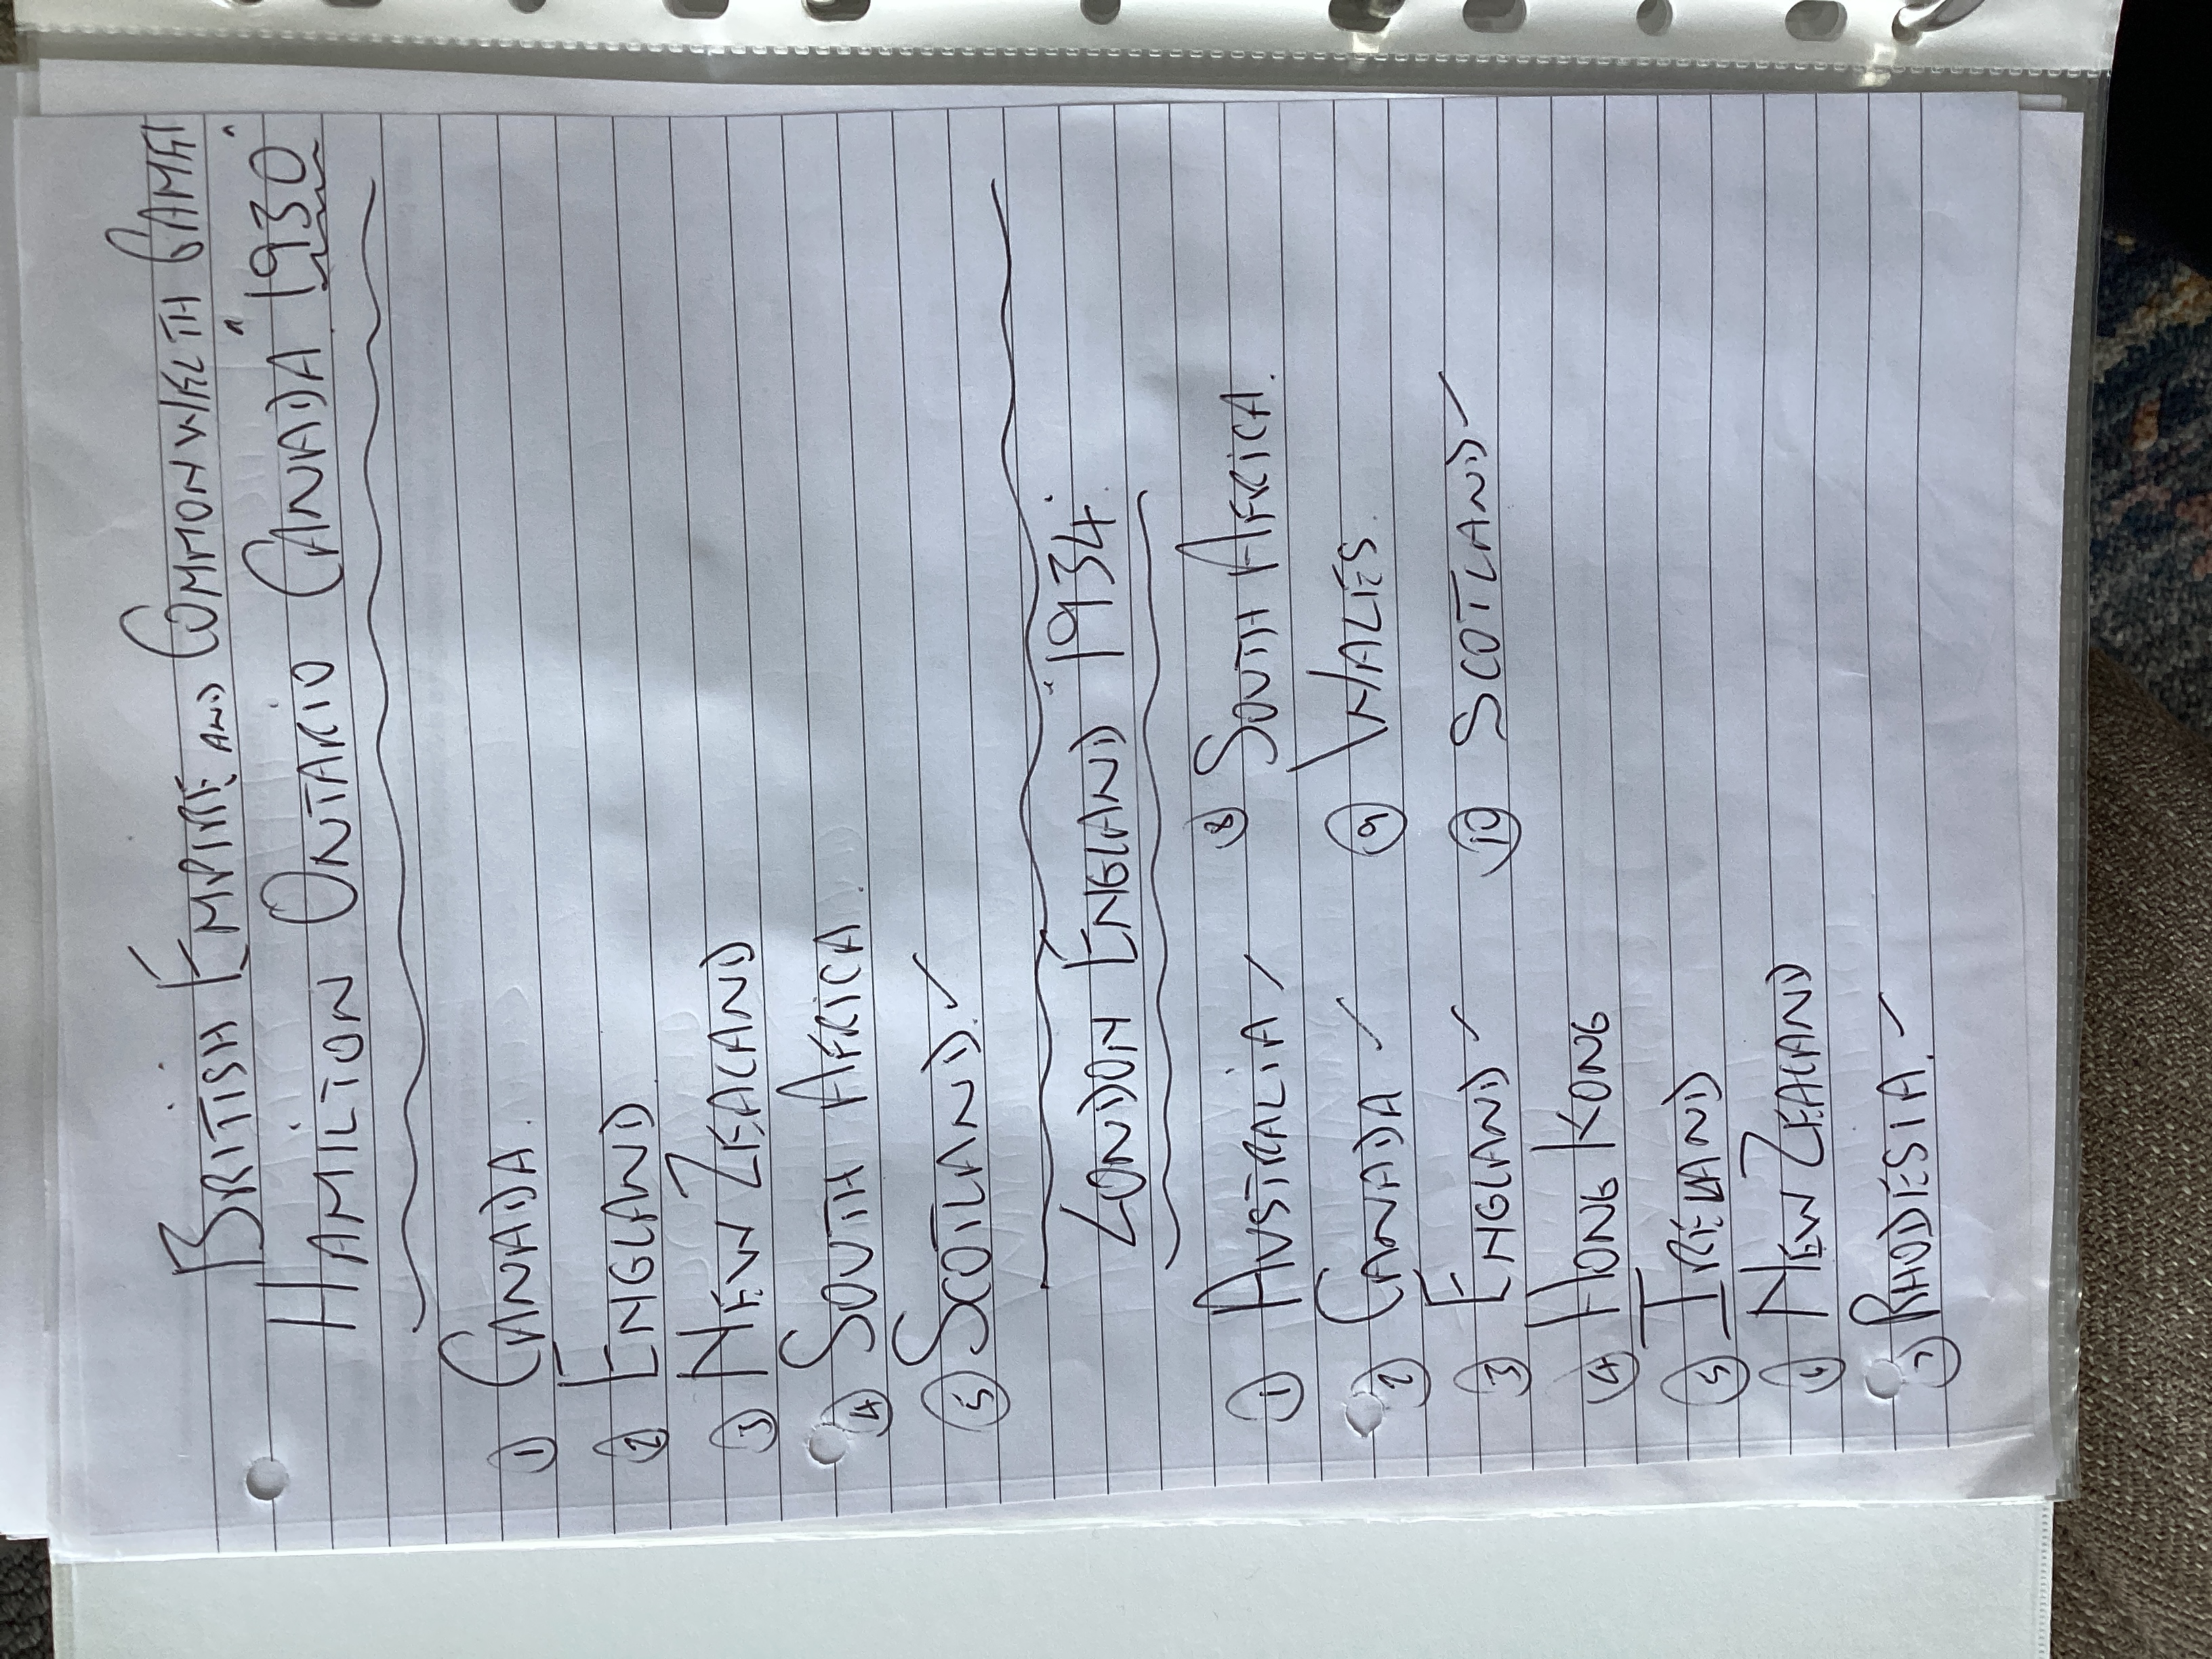 BRITISH EMPIRE AND COMMONWEALTH GAMES
HAMILTON ONTARIO CANADA "1930"
① CANADA.
② ENGLAND
③ NEW ZEALAND
④ SOUTH AFRICA.
⑤ SCOTLAND. ✓
LONDON ENGLAND "1934"
① AUSTRALIA ✓
② CANADA ✓
③ ENGLAND ✓
④ HONG KONG
⑤ IRELAND
⑥ NEW ZEALAND
⑦ RHODESIA. ✓
⑧ SOUTH AFRICA.
⑨ WALES.
⑩ SCOTLAND ✓